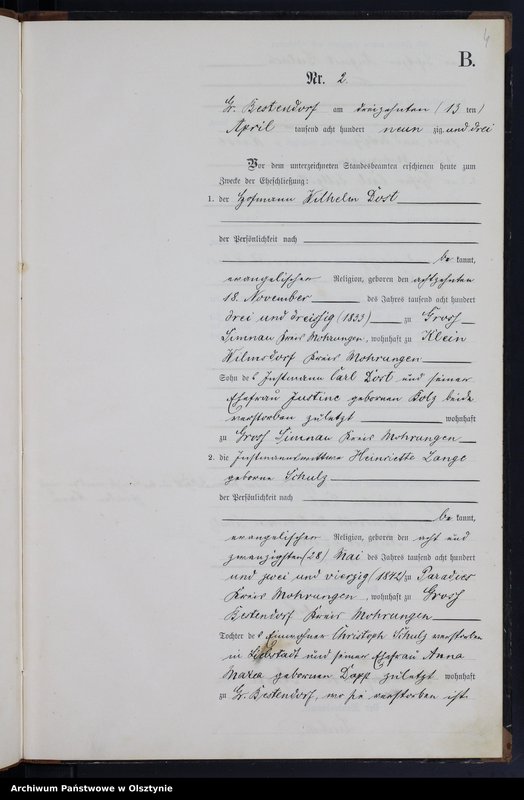 4
B.
Nr. 2.
Gr. Bestendorf am dreizehnten (13 ten)
April tausend acht hundert neun zig und drei
Vor dem unterzeichneten Standesbeamten erschienen heute zum
Zwecke der Eheschließung:
1. der Hofmann Wilhelm Dost
der Persönlichkeit nach
be kannt,
evangelischer Religion, geboren den achtzehnten
18. November des Jahres tausend acht hundert
drei und dreissig (1833) zu Gross
Simnau Kreis Mohrungen, wohnhaft zu Klein
Wilmsdorf Kreis Mohrungen
Sohn des Instmann Carl Dost und seiner
Ehefrau Justine geborenen Bolz beide
verstorben zuletzt wohnhaft
zu Gross Simnau Kreis Mohrungen
2. die Instmannswittwe Heinriette Lange
geborne Schulz
der Persönlichkeit nach
be kannt,
evangelischer Religion, geboren den acht und
zwanzigsten (28) Mai des Jahres tausend acht hundert
und zwei und vierzig (1842) zu Paradies
Kreis Mohrungen, wohnhaft zu Gross
Bestendorf Kreis Mohrungen
Tochter des Einwohner Christoph Schulz verstorben
in Liebstadt und seiner Ehefrau Anna
Maria geborenen Dopp zuletzt wohnhaft
zu Gr. Bestendorf, wo sie verstorben ist.
Archiwum Państwowe w Olsztynie